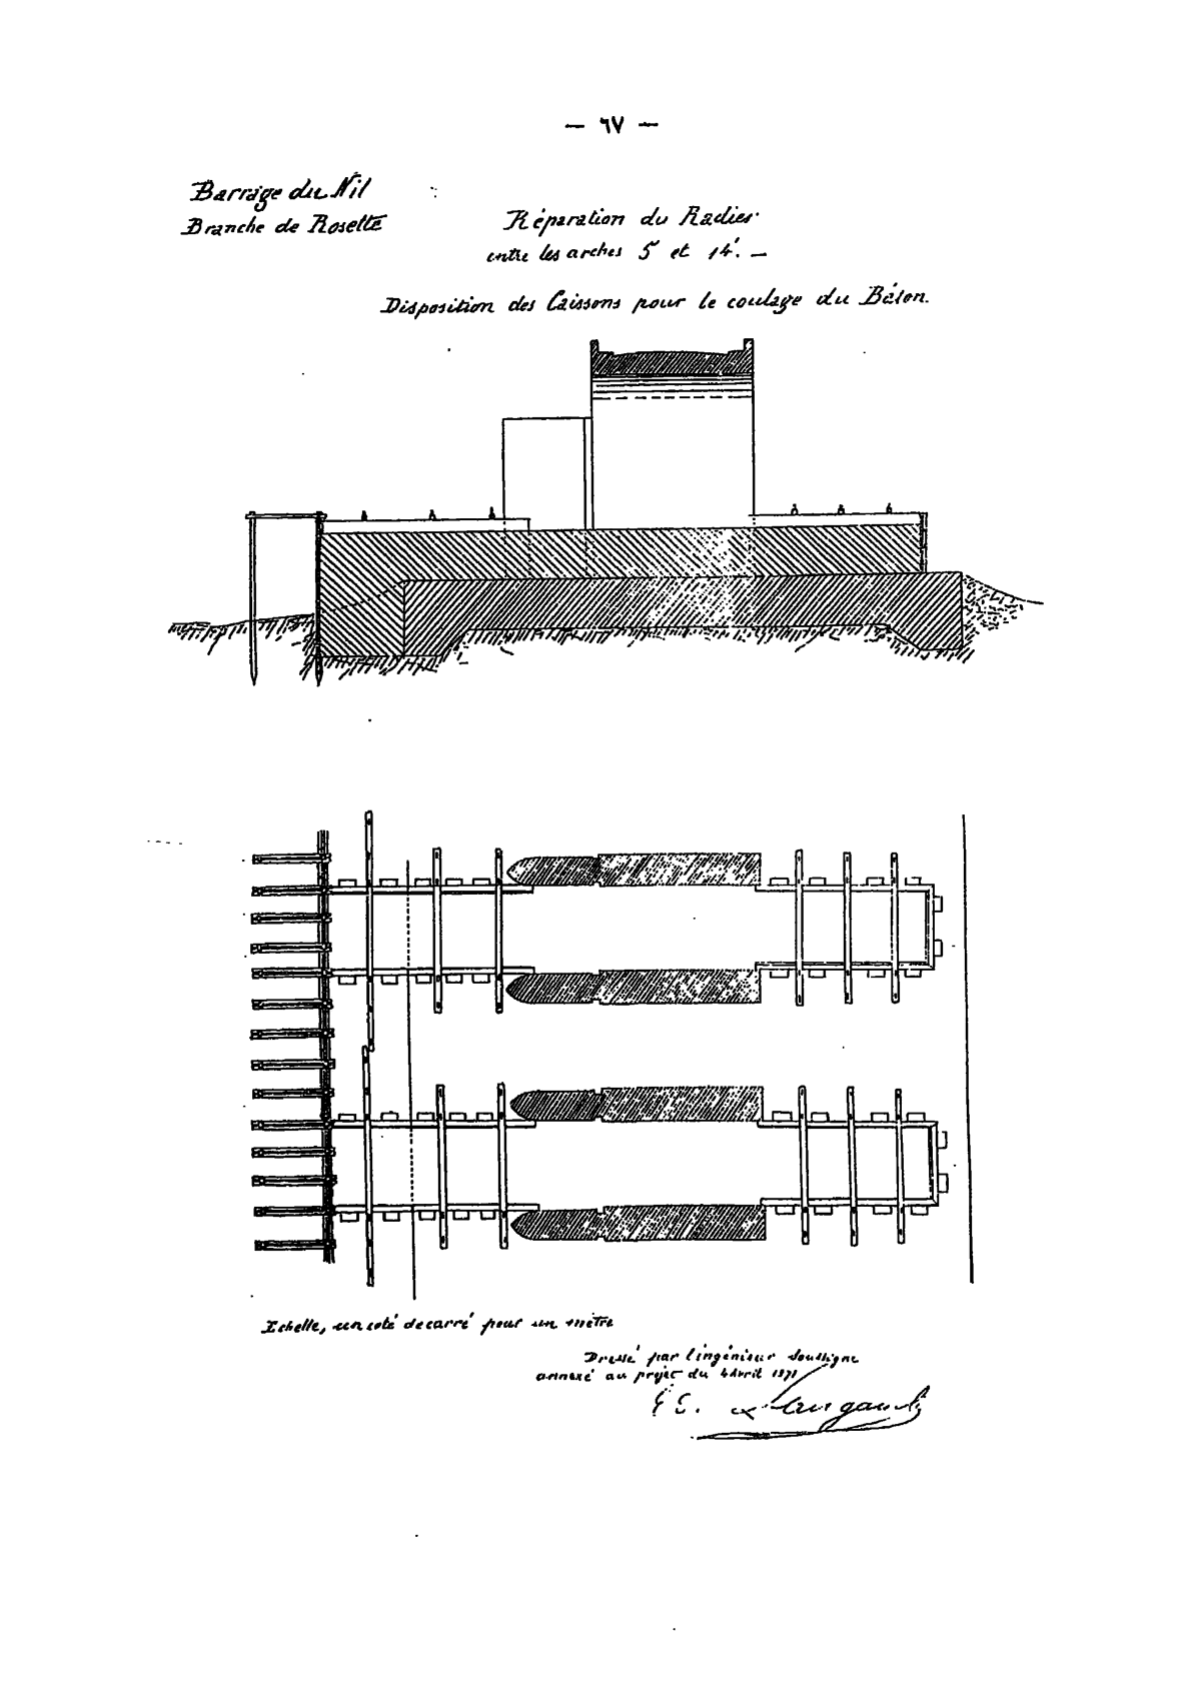 — ٦٧ —
Barrage du Nil
Branche de Rosette
Réparation du Radier
entre les arches 5 et 14. —
Disposition des Caissons pour le coulage du Béton.
Echelle, un coté de carré pour un mètre
Dressé par l'ingénieur soussigné
annexé au projet du 4 Avril 1871